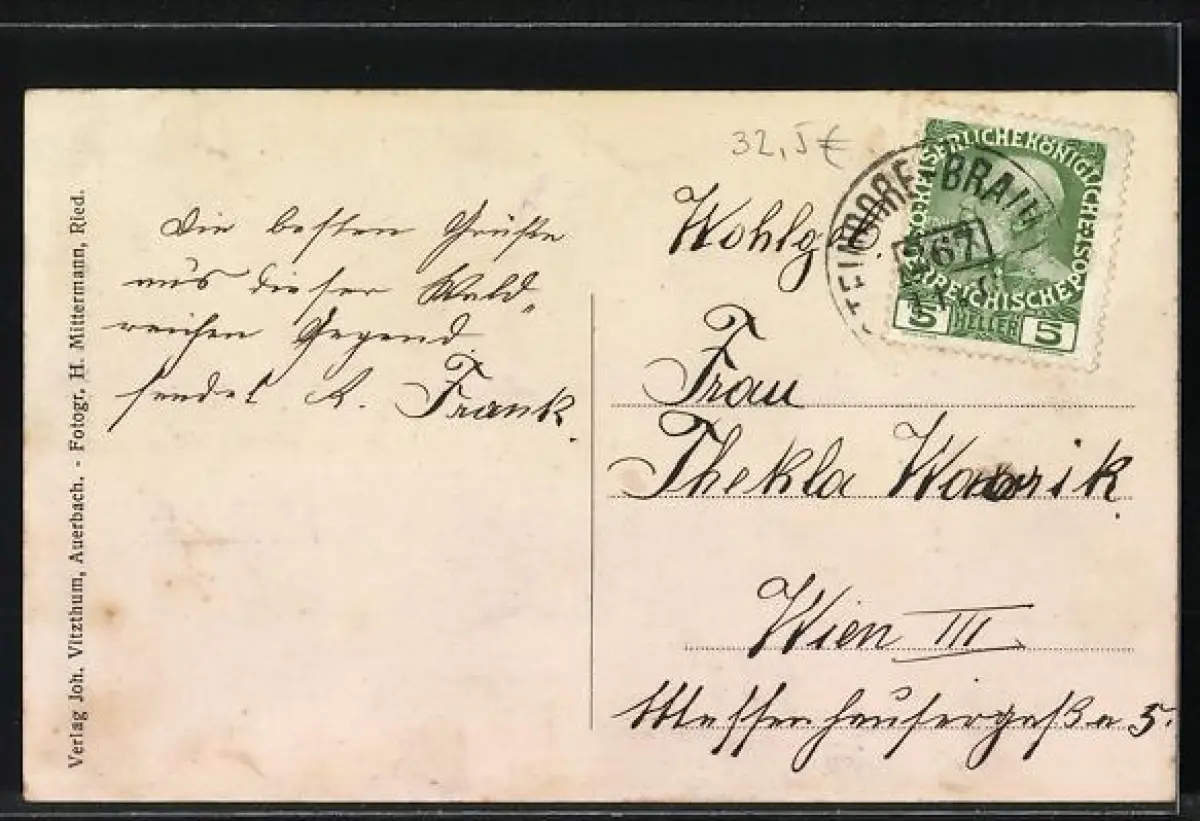 Verlag Joh. Vitzthum, Auerbach. - Fotogr. H. Mittermann, Ried.
Die besten Grüße
aus dieser Wald-
reichen Gegend
sendet R. Frank.
32,5€
Wohlg.
Frau
Thekla
Wien III
Messenhausergaße 5.
KAISERLICHE KÖNIGLICHE ÖSTERREICHISCHE POST
5 HELLER 5
67